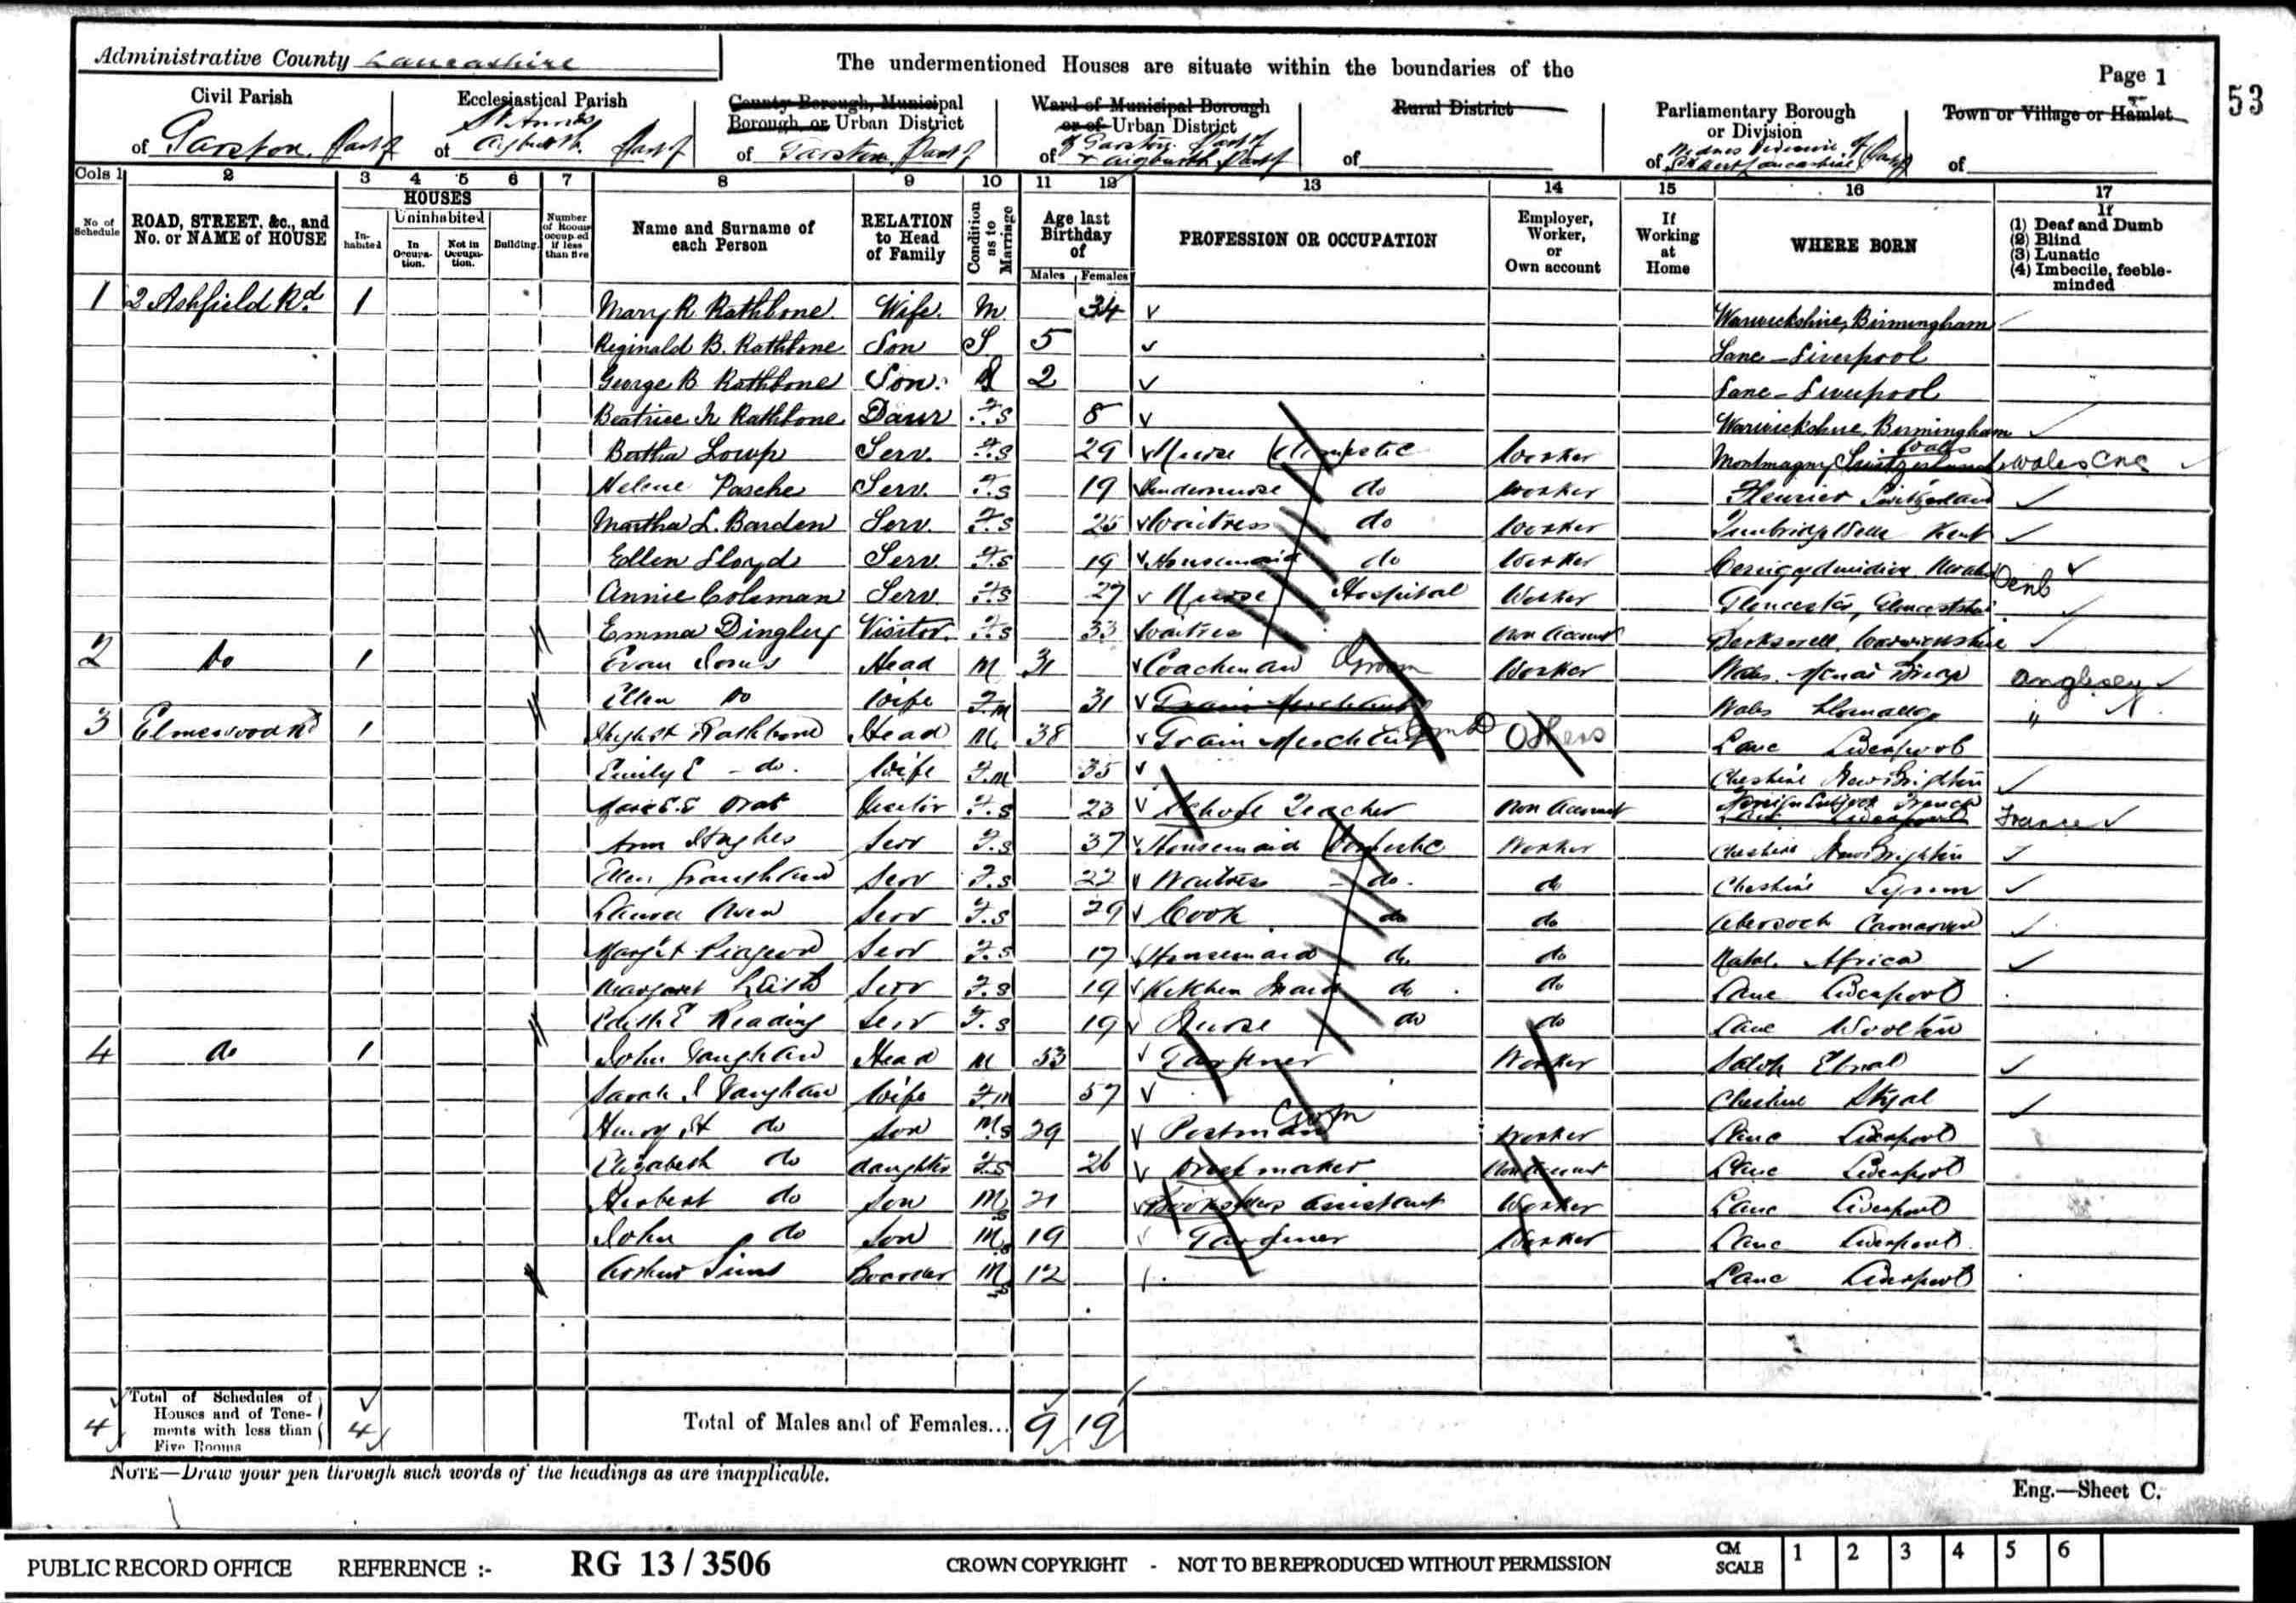 Administrative County Lancashire
The undermentioned Houses are situate within the boundaries of the
Page 1
53
Civil Parish
of Garston Part of
Ecclesiastical Parish
of St Anne's Aigburth Part of
County Borough, Municipal Borough or Urban District
of Garston Part of
Ward of Municipal Borough or of Urban District
of Garston Part of & Aigburth Part of
Rural District
of
Parliamentary Borough or Division
of Widnes Division of S.W. Lancashire Part of
Town or Village or Hamlet
of
Cols 1 2 3 4 5 6 7 8 9 10 11 12 13 14 15 16 17
No. of Schedule
ROAD, STREET, &c., and No. or NAME of HOUSE
HOUSES
Inhabited
Uninhabited
In Occupation.
Not in Occupation.
Building.
Number of Rooms occupied if less than five
Name and Surname of each Person
RELATION to Head of Family
Condition as to Marriage
Age last Birthday of
Males Females
PROFESSION OR OCCUPATION
Employer, Worker, or Own account
If Working at Home
WHERE BORN
If
(1) Deaf and Dumb
(2) Blind
(3) Lunatic
(4) Imbecile, feeble-minded
1 2 Ashfield Rd. 1 Mary R Rathbone Wife. M 34 Warwickshire, Birmingham
Reginald B. Rathbone Son S 5 Lanc - Liverpool
George B Rathbone Son. S 2 Lanc - Liverpool
Beatrice Rathbone Daur F.S 8 Warwickshire, Birmingham
Bertha Serv. F.S 29 Nurse (Domestic Worker Montmagny Switzerland
Helene Pasche Serv. F.S 19 Undernurse do Worker Fleurier Switzerland
Martha L. Barden Serv. F.S 25 Waitress do Worker Tunbridge Wells Kent
Ellen Lloyd Serv. F.S 19 Housemaid do Worker Cerrigydruidion, Wales Denb
Annie Coleman Serv. F.S 27 Nurse Hospital Worker Gloucester, Gloucestshr
Emma Dingley Visitor. F.S 33 Waitress Own Account Berkswell, Warwickshire
2 Do 1 Evan Head M 31 Coachman Groom Worker Wales. Menai Bridge Anglesey
Ellen Do Wife F.M 31 Grain Merchant Wales "
3 Elmswood Rd 1 Hugh R Rathbone Head M 38 Grain Merchant Others Lanc Liverpool
Emily E - do. Wife F.M 35 Cheshire New Brighton
Visitor F.S 23 School Teacher Own Account Foreign Subject French France
Ann Hughes Serv F.S 37 Housemaid (Domestic Worker Cheshire New Brighton
Ellen Serv F.S 22 Waitress - do. do Cheshire Lymm
Laura Owen Serv F.S 29 Cook do do Abersoch Carnarvon
Marg't Serv F.S 17 Housemaid do. do Natal. Africa
Margaret Serv F.S 19 Kitchen Maid do. do Lanc Liverpool
Edith E Reading Serv F.S 19 Nurse do do Lanc Woolton
4 do 1 John Vaughan Head M 53 Gardener Worker Salop
Sarah J Vaughan Wife F.M 57 Cheshire Styal
Henry H do Son M.S 29 Postman Worker Lanc Liverpool
Elizabeth do daughter F.S 26 Dressmaker Own Account Lanc Liverpool
Herbert do Son M.S 21 Booksellers assistant Worker Lanc Liverpool
John do Son M.S 19 Gardener Worker Lanc Liverpool
Arthur Sims Boarder M.S 12 Lanc Liverpool
4 Total of Schedules of Houses and of Tenements with less than Five Rooms 4
Total of Males and of Females... 9 19
NOTE—Draw your pen through such words of the headings as are inapplicable.
Eng.—Sheet C.
PUBLIC RECORD OFFICE REFERENCE :- RG 13 / 3506 CROWN COPYRIGHT - NOT TO BE REPRODUCED WITHOUT PERMISSION
CM SCALE 1 2 3 4 5 6